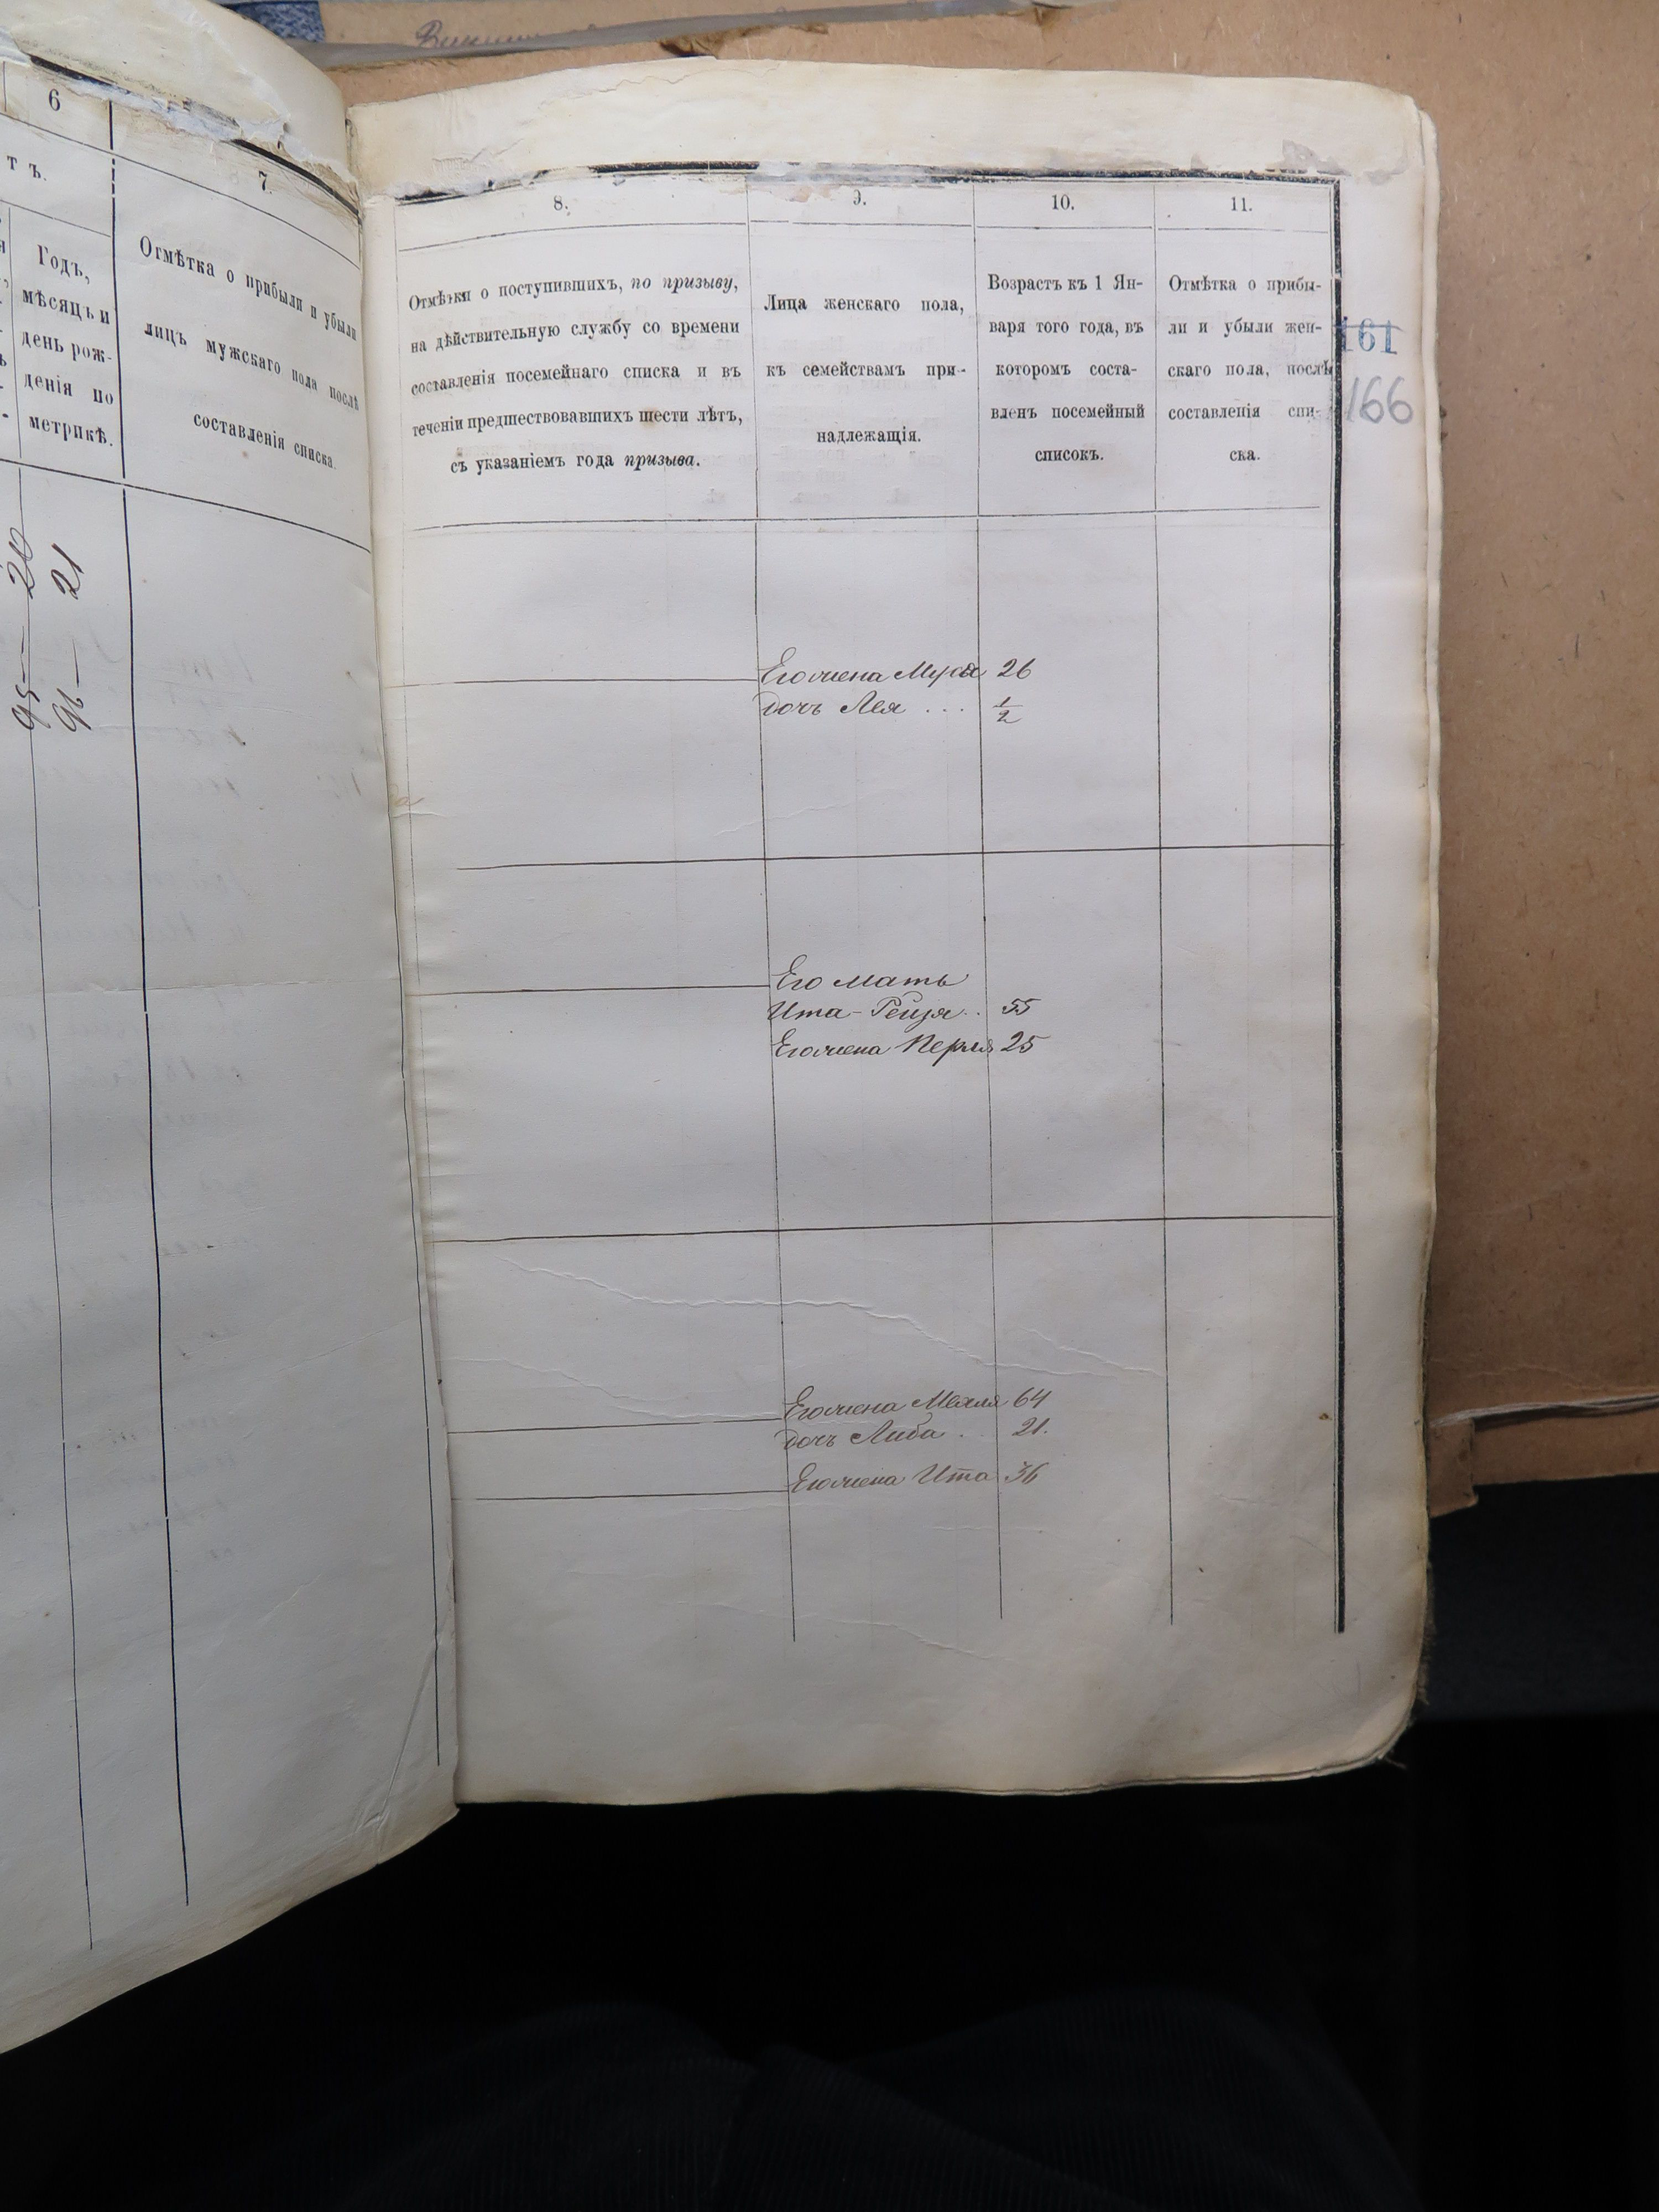 6
7.
тъ.
Годъ,
мѣсяцъ и
день рож-
денія по
метрикѣ.
Отмѣтка о прибыли и убыли
лицъ мужскаго пола послѣ
составленія списка.
95 — 20
96 — 21
8.
9.
10.
11.
Отмѣтки о поступившихъ, по призыву,
на дѣйствительную службу со времени
составленія посемейнаго списка и въ
теченіи предшествовавшихъ шести лѣтъ,
съ указаніемъ года призыва.
Лица женскаго пола,
къ семействамъ при-
надлежащія.
Возрастъ къ 1 Ян-
варя того года, въ
которомъ соста-
вленъ посемейный
списокъ.
Отмѣтка о прибы-
ли и убыли жен-
скаго пола, послѣ
составленія спи-
ска.
161
166
Его жена 26
дочь Лея ... 1/2
Его мать
Ита-Рейза .. 55
Его жена Перля 25
Его жена 64
дочь Либа . 21.
Его жена Ита 36